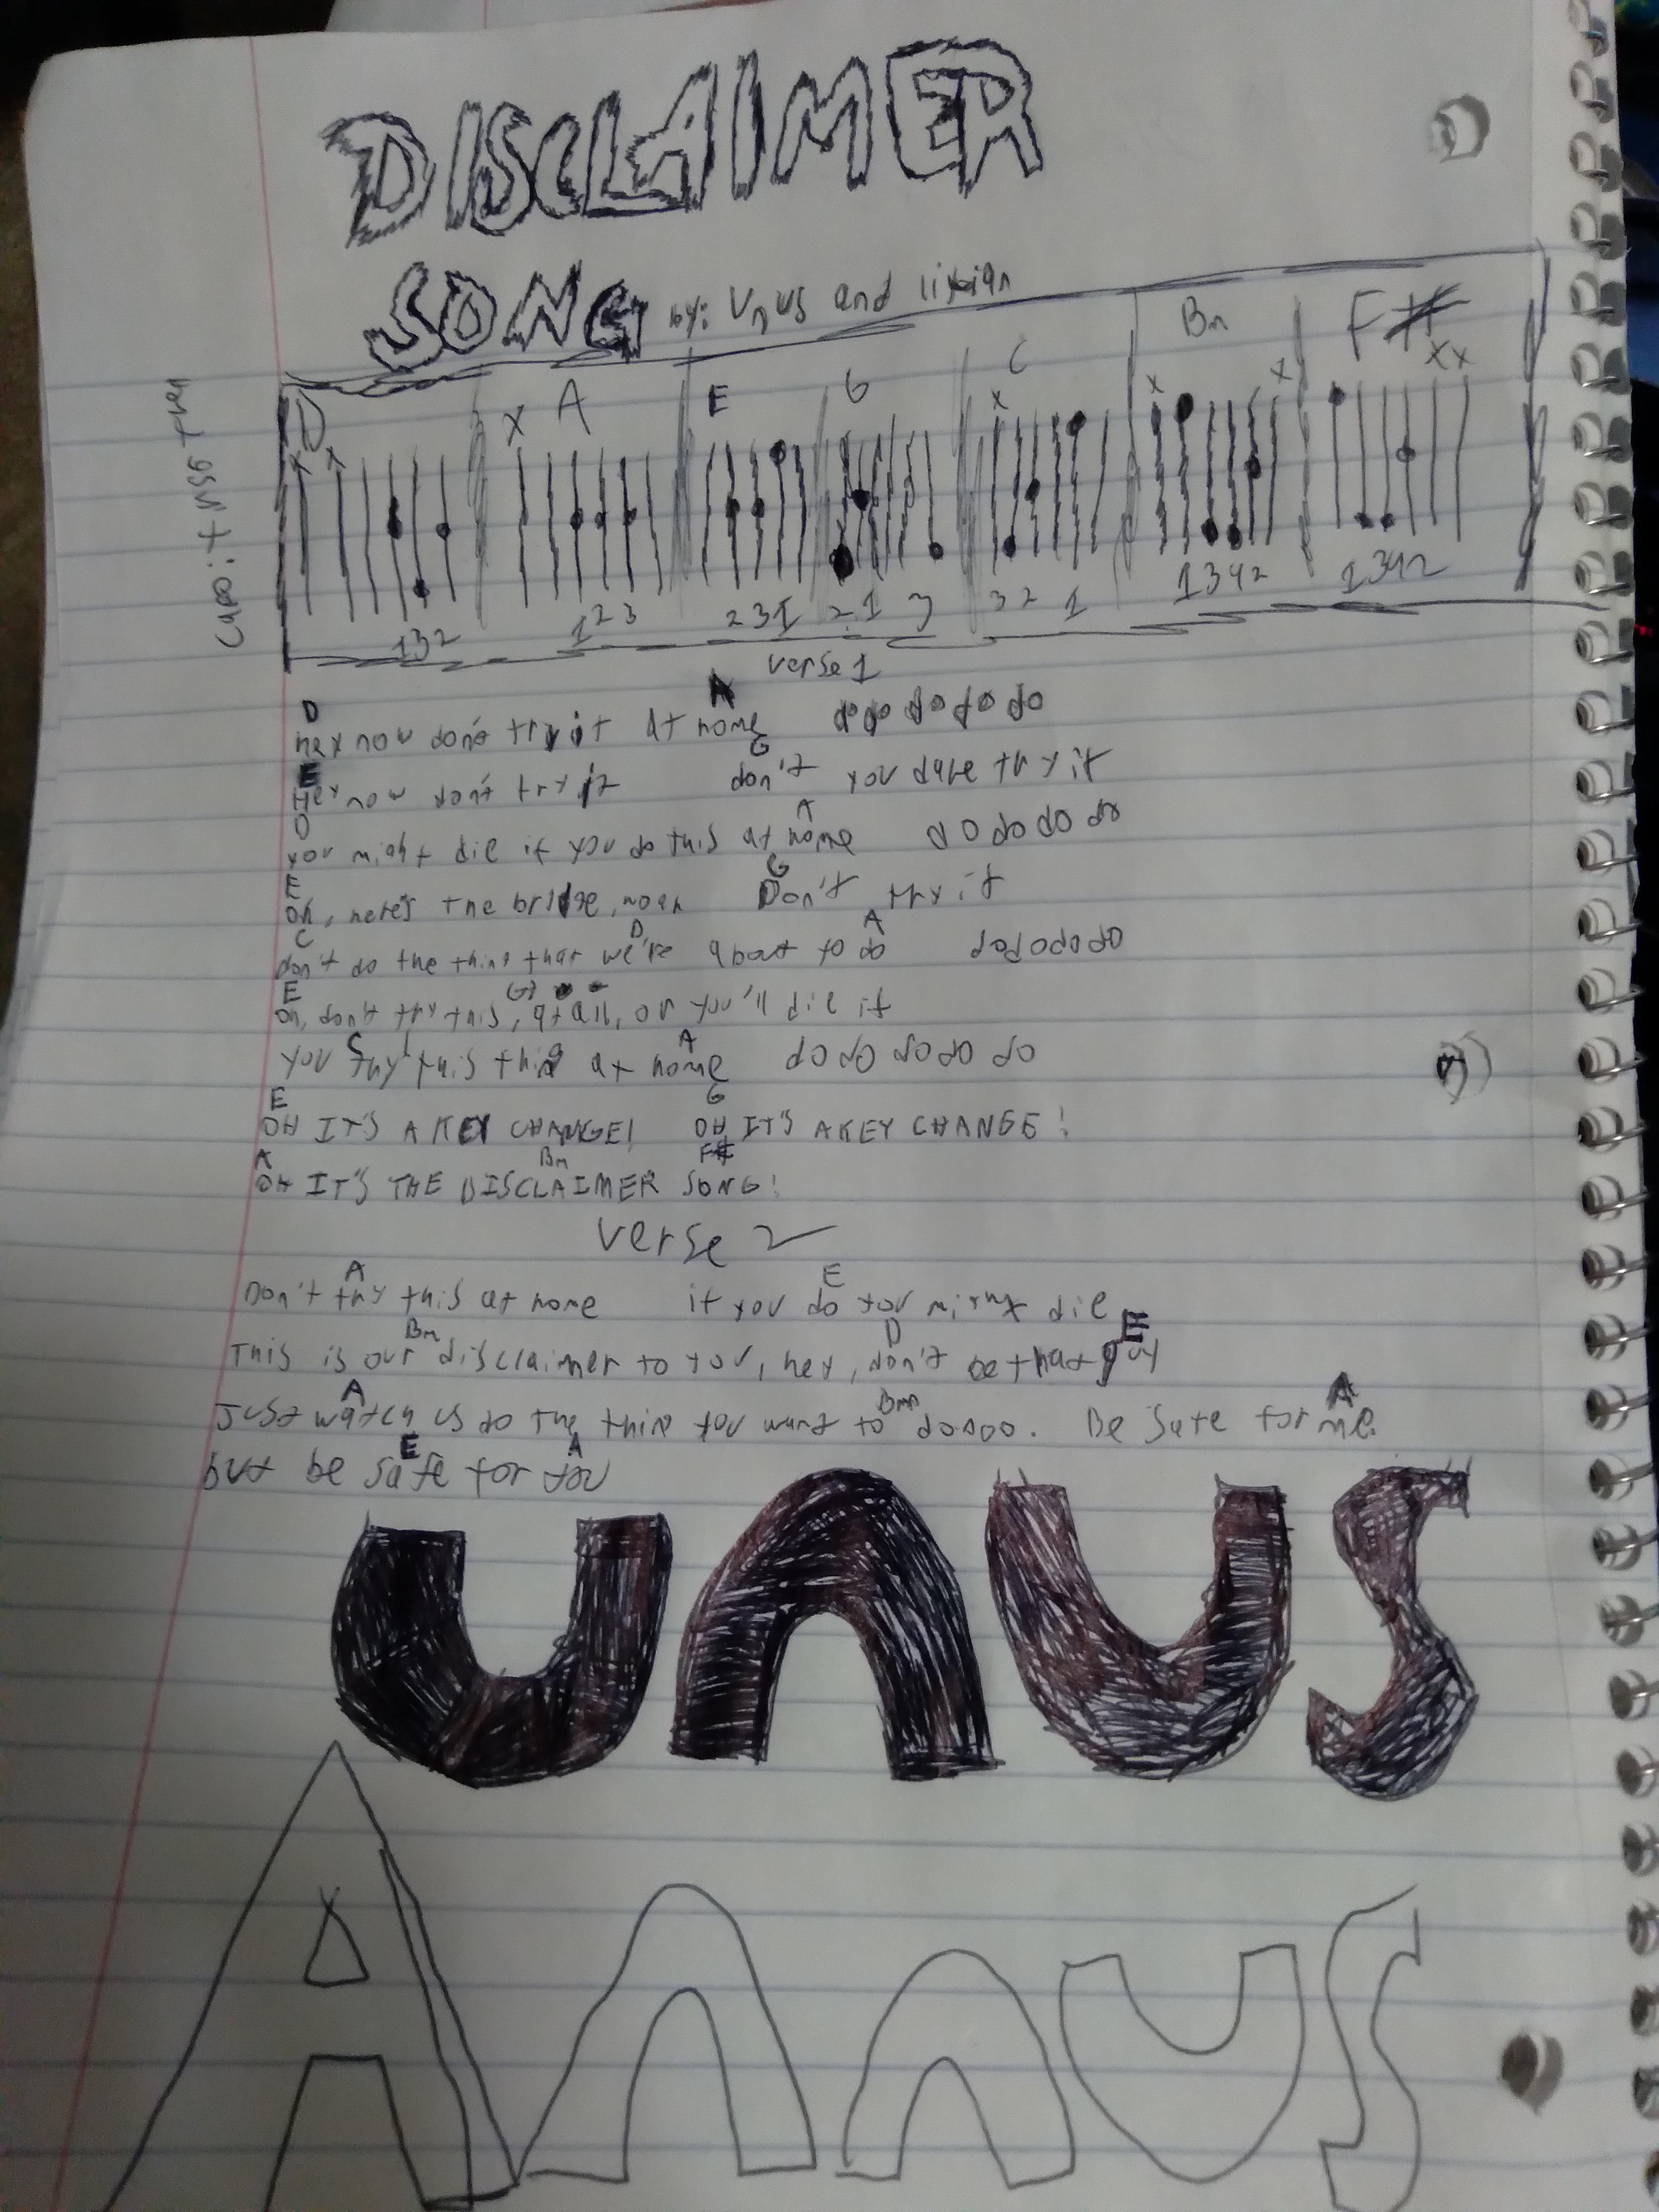 DISCLAIMER
SONG by: Unus and lixian
D A E G C Bm F#
x x x x x x x x
132 123 231 21 3 32 1 1342 1342
verse 1
D A
hey now don't try it at home dodo dododo do
E G
Hey now don't try it don't you dare try it
D A
you might die if you do this at home do dododo do
E G
Oh, here's the bridge, woah Don't try it
C D A
don't do the thing that we're about to do dododododo
E G
oh, don't try this, at all, or you'll die if
C A
you try this thing at home dodo dododo do
E G
OH IT'S A KEY CHANGE! OH IT'S A KEY CHANGE!
A Bm F#
OH IT'S THE DISCLAIMER SONG!
verse 2
A E
Don't try this at home if you do you might die
Bm D E
This is our disclaimer to you, hey, don't be that guy
A Bm A
Just watch us do the thing you want to doooo. Be safe for me.
E A
but be safe for you
unus
Annus